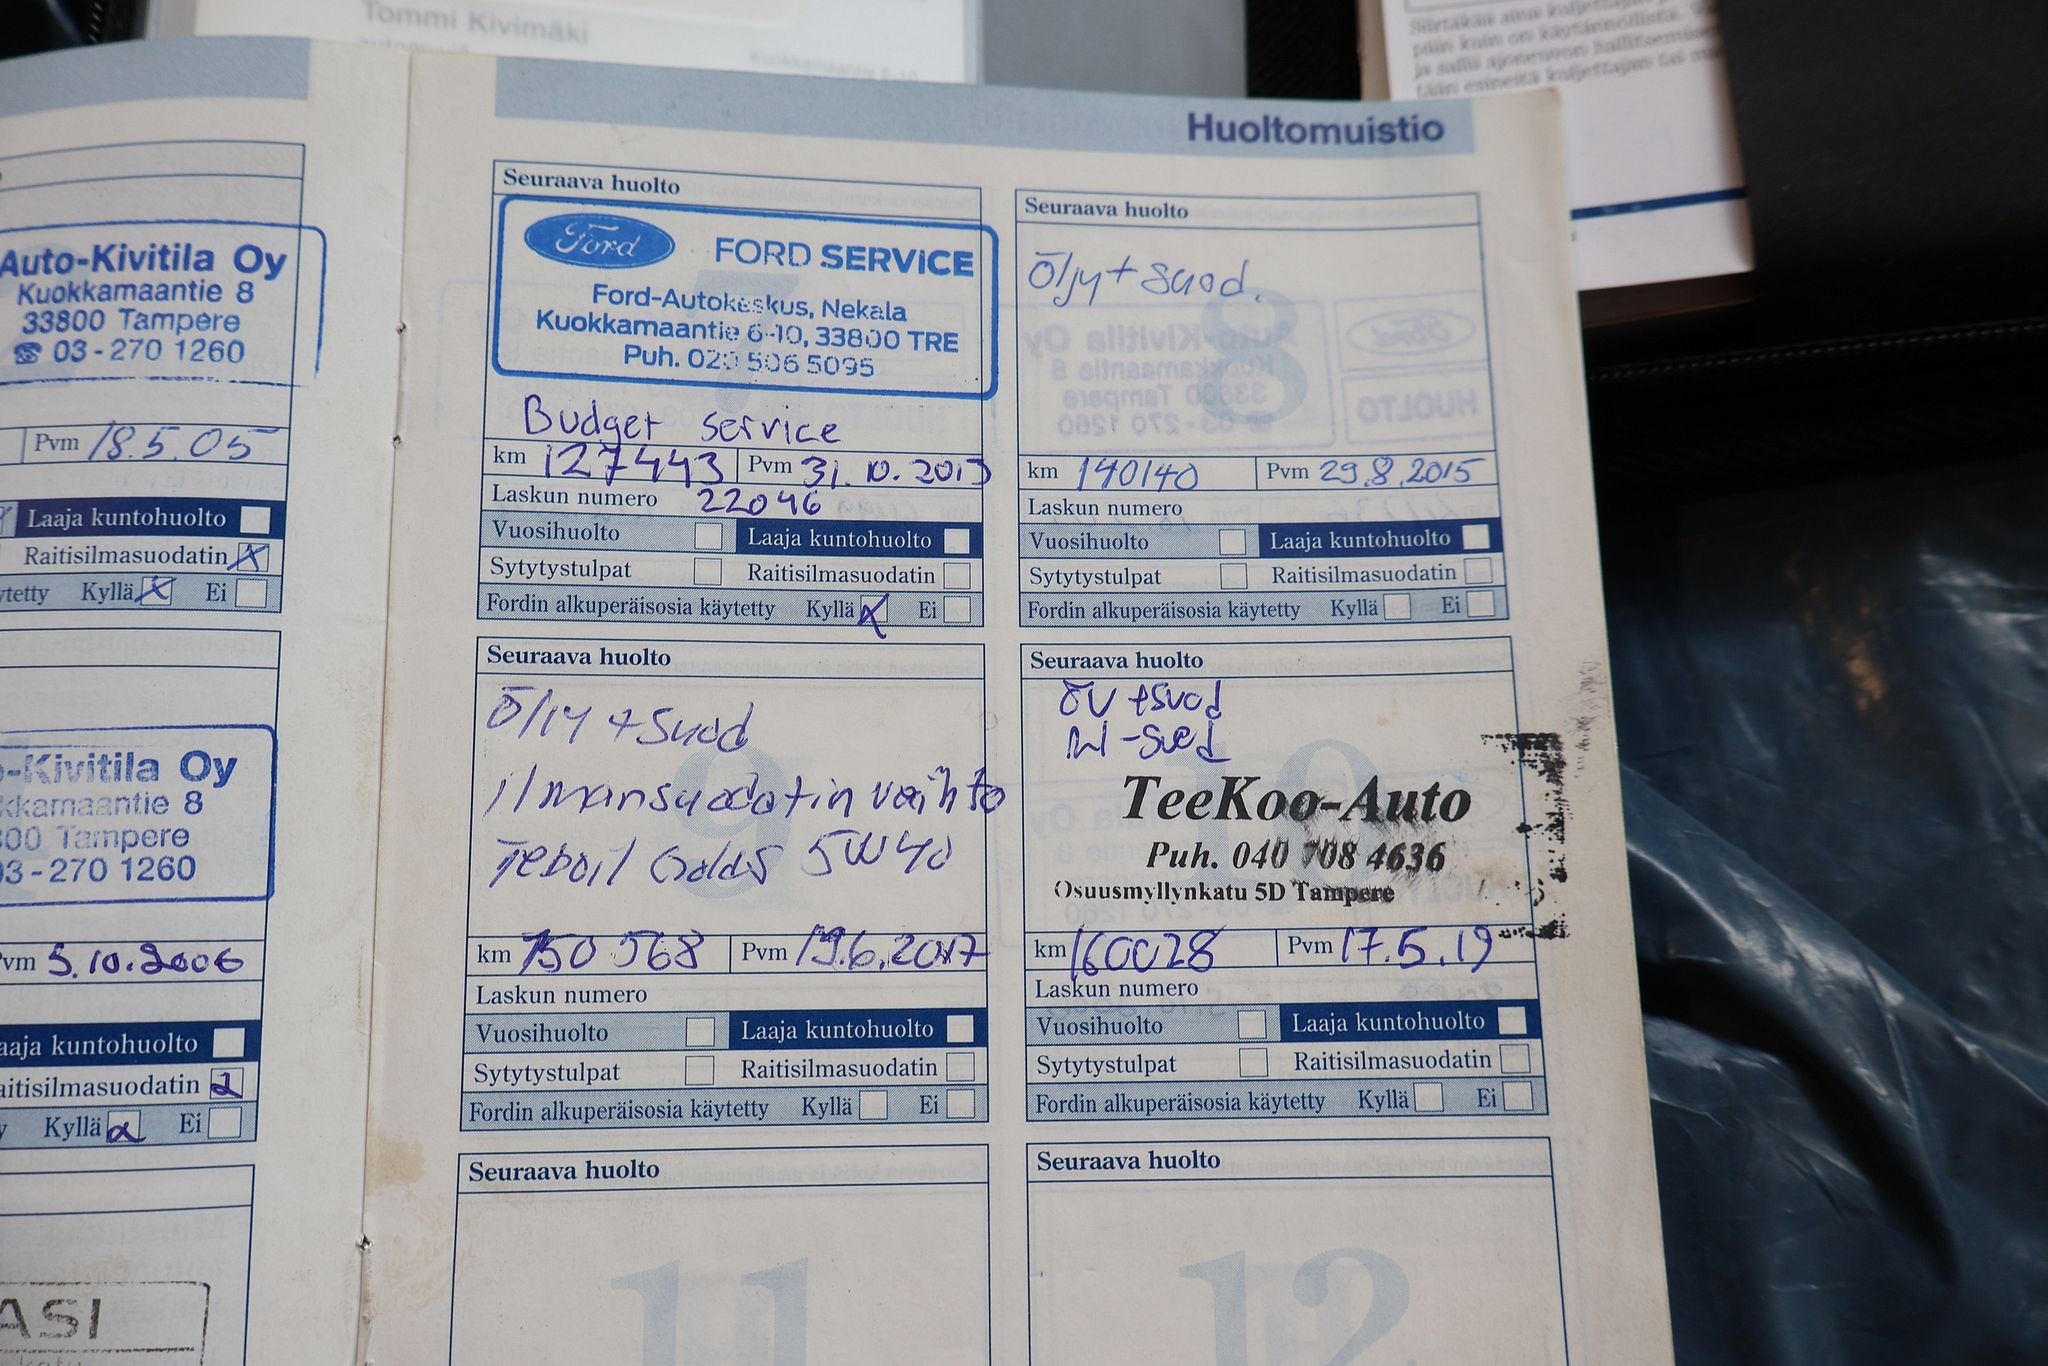 Tommi Kivimäki
Kuokkamaantie 6-10
Siirtäkää aina kuljettajan
päin kuin on käytännöllistä.
ja sallii ajoneuvon hallitsemise
tään esineitä kuljettajan tai
Auto-Kivitila Oy
Kuokkamaantie 8
33800 Tampere
☎ 03-270 1260
Pvm 18.5.05
Laaja kuntohuolto
Raitisilmasuodatin X
ytetty Kyllä X Ei
-Kivitila Oy
kkamaantie 8
00 Tampere
03-270 1260
Pvm 5.10.2006
aaja kuntohuolto
aitisilmasuodatin
Kyllä Ei
ASI
Huoltomuistio
Seuraava huolto
Ford FORD SERVICE
Ford-Autokeskus, Nekala
Kuokkamaantie 6-10, 33800 TRE
Puh. 020 506 5095
Budget service
km 127443 Pvm 31.10.2013
Laskun numero 22046
Vuosihuolto Laaja kuntohuolto
Sytytystulpat Raitisilmasuodatin
Fordin alkuperäisosia käytetty Kyllä X Ei
Seuraava huolto
Öljy + suod.
8
km 140140 Pvm 29.8.2015
Laskun numero
Vuosihuolto Laaja kuntohuolto
Sytytystulpat Raitisilmasuodatin
Fordin alkuperäisosia käytetty Kyllä Ei
Seuraava huolto
Öljy + suod
ilmansuodatin vaihto
Teboil Golds 5W40
9
km 150 568 Pvm 19.6.2017
Laskun numero
Vuosihuolto Laaja kuntohuolto
Sytytystulpat Raitisilmasuodatin
Fordin alkuperäisosia käytetty Kyllä Ei
Seuraava huolto
ÖV + suod
-suod
10
TeeKoo-Auto
Puh. 040 708 4636
Osuusmyllynkatu 5D Tampere
km 160028 Pvm 17.5.19
Laskun numero
Vuosihuolto Laaja kuntohuolto
Sytytystulpat Raitisilmasuodatin
Fordin alkuperäisosia käytetty Kyllä Ei
Seuraava huolto
11
Seuraava huolto
12